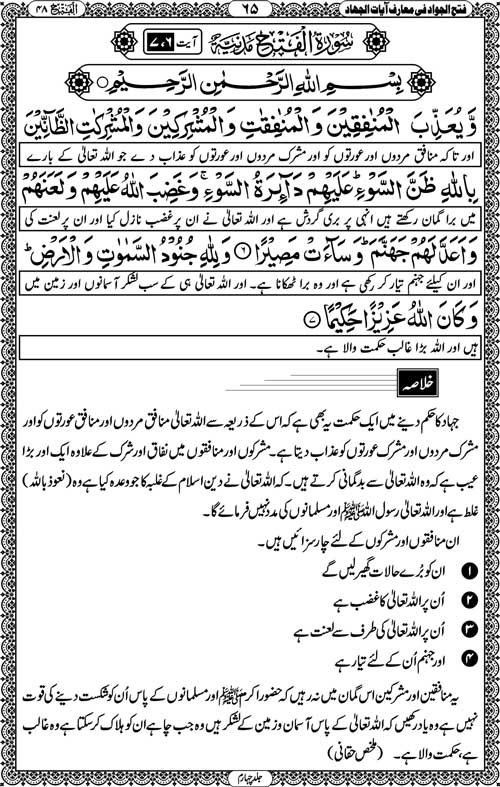 فتح الجواد فی معارف آیات الجهاد
۶۵
الفتح ۴۸
سورة الفتح مدنية آیت ۷،۶
بسم الله الرحمن الرحيم
وَّيُعَذِّبَ الْمُنٰفِقِيْنَ وَالْمُنٰفِقٰتِ وَالْمُشْرِكِيْنَ وَالْمُشْرِكٰتِ الظَّآنِّيْنَ
اور تاکہ منافق مردوں اور عورتوں کو اور مشرک مردوں اور عورتوں کو عذاب دے جو اللہ تعالیٰ کے بارے
بِاللهِ ظَنَّ السَّوْءِ ؕ عَلَيْهِمْ دَآئِرَةُ السَّوْءِ ۚ وَغَضِبَ اللهُ عَلَيْهِمْ وَلَعَنَهُمْ
میں برا گمان رکھتے ہیں انہی پر بری گردش ہے اور اللہ تعالیٰ نے ان پر غضب نازل کیا اور ان پر لعنت کی
وَاَعَدَّ لَهُمْ جَهَنَّمَ ؕ وَسَآءَتْ مَصِيْرًا ۝۶ وَلِلّٰهِ جُنُوْدُ السَّمٰوٰتِ وَالْاَرْضِ ؕ
اور ان کیلئے جہنم تیار کر رکھی ہے اور وہ برا ٹھکانا ہے۔ اور اللہ تعالیٰ ہی کے سب لشکر آسمانوں اور زمین میں
وَكَانَ اللهُ عَزِيْزًا حَكِيْمًا ۝۷
ہیں اور اللہ بڑا غالب حکمت والا ہے۔
خلاصہ
جہاد کا حکم دینے میں ایک حکمت یہ بھی ہے کہ اس کے ذریعہ سے اللہ تعالیٰ منافق مردوں اور منافق عورتوں کو اور
مشرک مردوں اور مشرک عورتوں کو عذاب دیتا ہے۔ مشرکوں اور منافقوں میں نفاق اور شرک کے علاوہ ایک اور بڑا
عیب ہے کہ وہ اللہ تعالیٰ سے بدگمانی کرتے ہیں۔ کہ اللہ تعالیٰ نے دین اسلام کے غلبہ کا جو وعدہ کیا ہے وہ (نعوذ باللہ)
غلط ہے اور اللہ تعالیٰ رسول اللہ ﷺ اور مسلمانوں کی مدد نہیں فرمائے گا۔
ان منافقوں اور مشرکوں کے لئے چار سزائیں ہیں۔
۱ ان کو بُرے حالات گھیر لیں گے
۲ اُن پر اللہ تعالیٰ کا غضب ہے
۳ اُن پر اللہ تعالیٰ کی طرف سے لعنت ہے
۴ اور جہنم اُن کے لئے تیار ہے
یہ منافقین اور مشرکین اس گمان میں نہ رہیں کہ حضور اکرم ﷺ اور مسلمانوں کے پاس اُن کو شکست دینے کی قوت
نہیں ہے وہ یاد رکھیں کہ اللہ تعالیٰ کے پاس آسمان و زمین کے لشکر ہیں وہ جب چاہے ان کو ہلاک کر سکتا ہے وہ غالب
ہے، حکمت والا ہے۔ (ملخص حقانی)
جلد چہارم